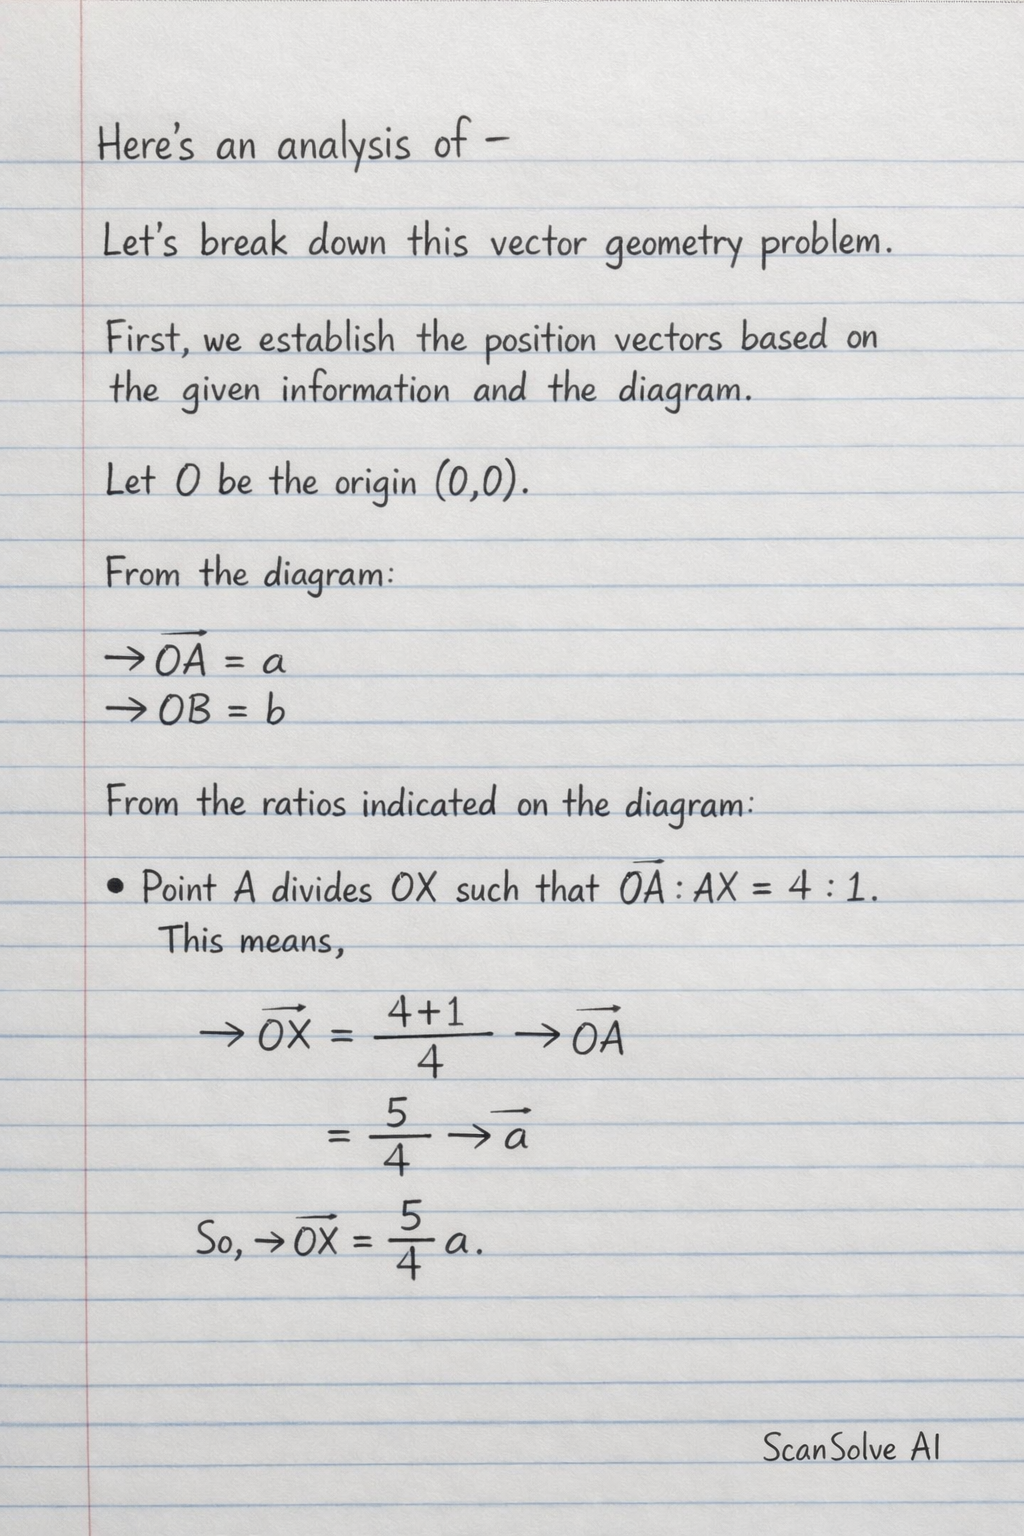 Here's an analysis of –
Let's break down this vector geometry problem.
First, we establish the position vectors based on
the given information and the diagram.
Let O be the origin (0,0).
From the diagram:
→ \overrightarrow{OA} = a
→ OB = b
From the ratios indicated on the diagram:
• Point A divides OX such that \overrightarrow{OA} : AX = 4 : 1.
This means,
→ \overrightarrow{OX} = \frac{4+1}{4} → \overrightarrow{OA}
= \frac{5}{4} → \overrightarrow{a}
So, → \overrightarrow{OX} = \frac{5}{4} a.
ScanSolve AI